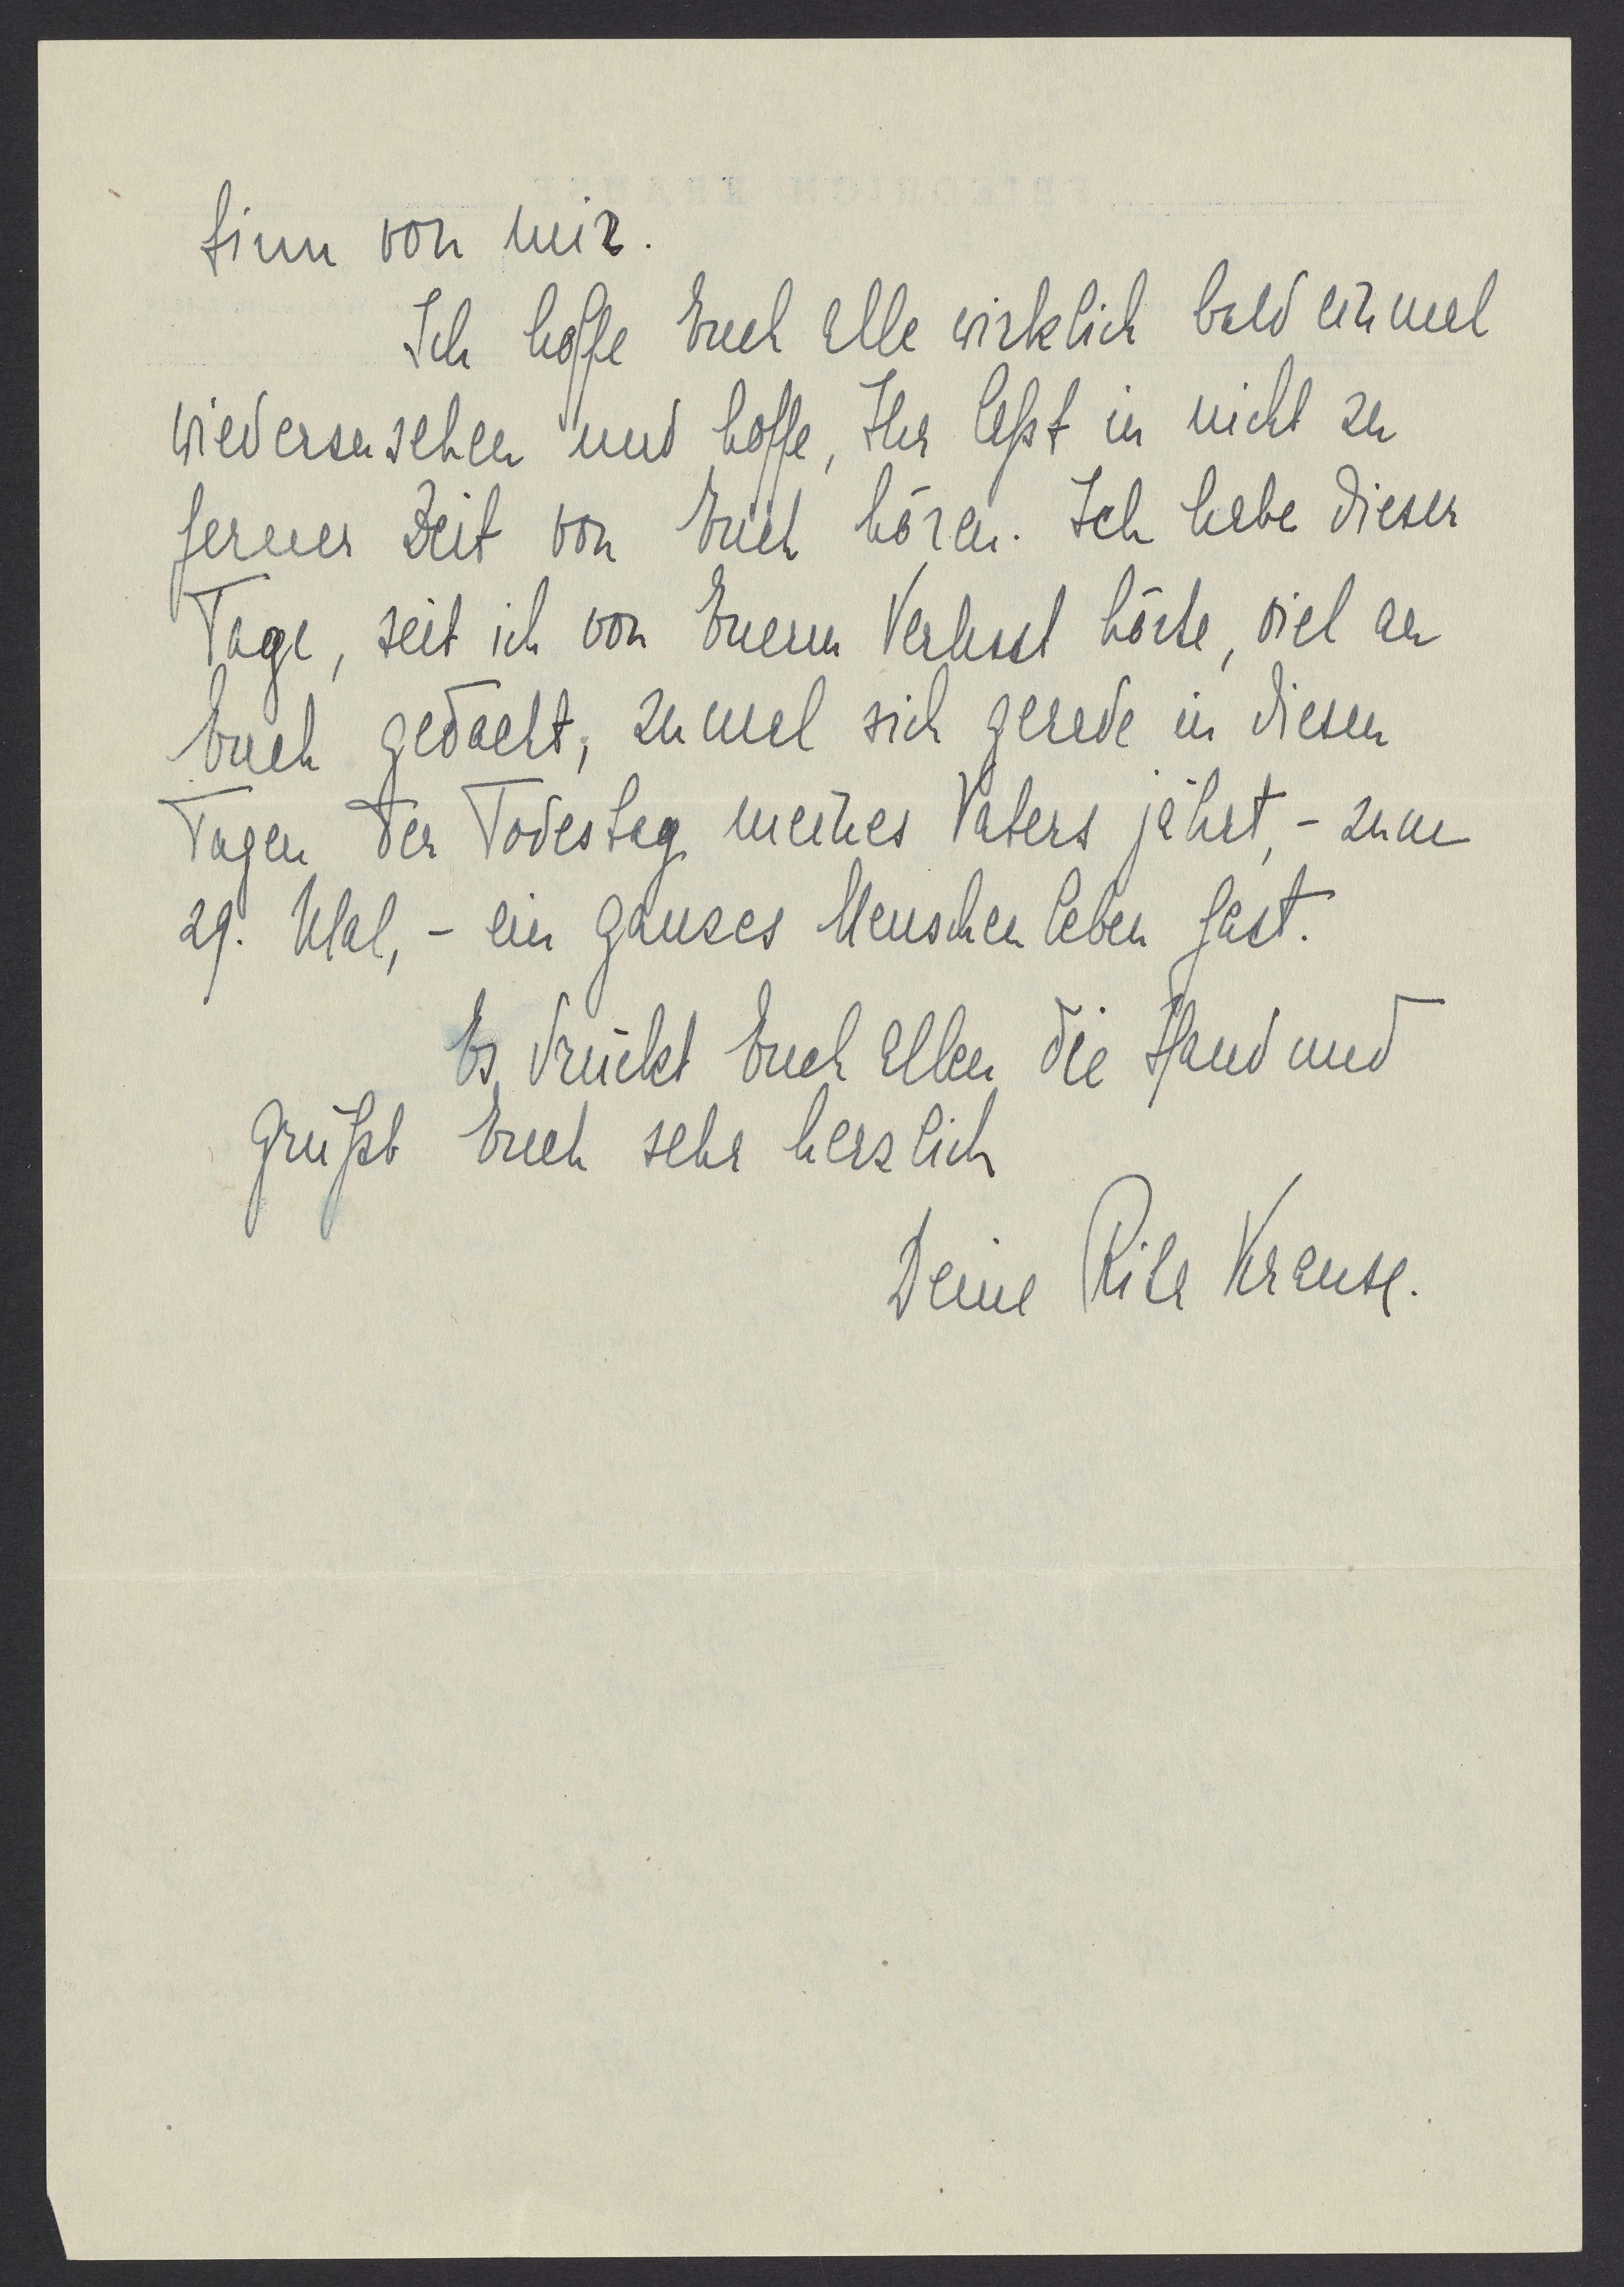 sinn von mir.
Ich hoffe Euch alle wirklich bald einmal
wiederzusehen und hoffe, Ihr laßt in nicht zu
ferner Zeit von Euch hören. Ich habe dieser
Tage, seit ich von Euerm Verlust hörte, viel an
Euch gedacht, zumal sich gerade in diesen
Tagen der Todestag meines Vaters jährt, - zum
29. Mal, - ein ganzes Menschenleben fast.
Es drückt Euch allen die Hand und
grüßt Euch sehr herzlich
Deine Rita Krause.